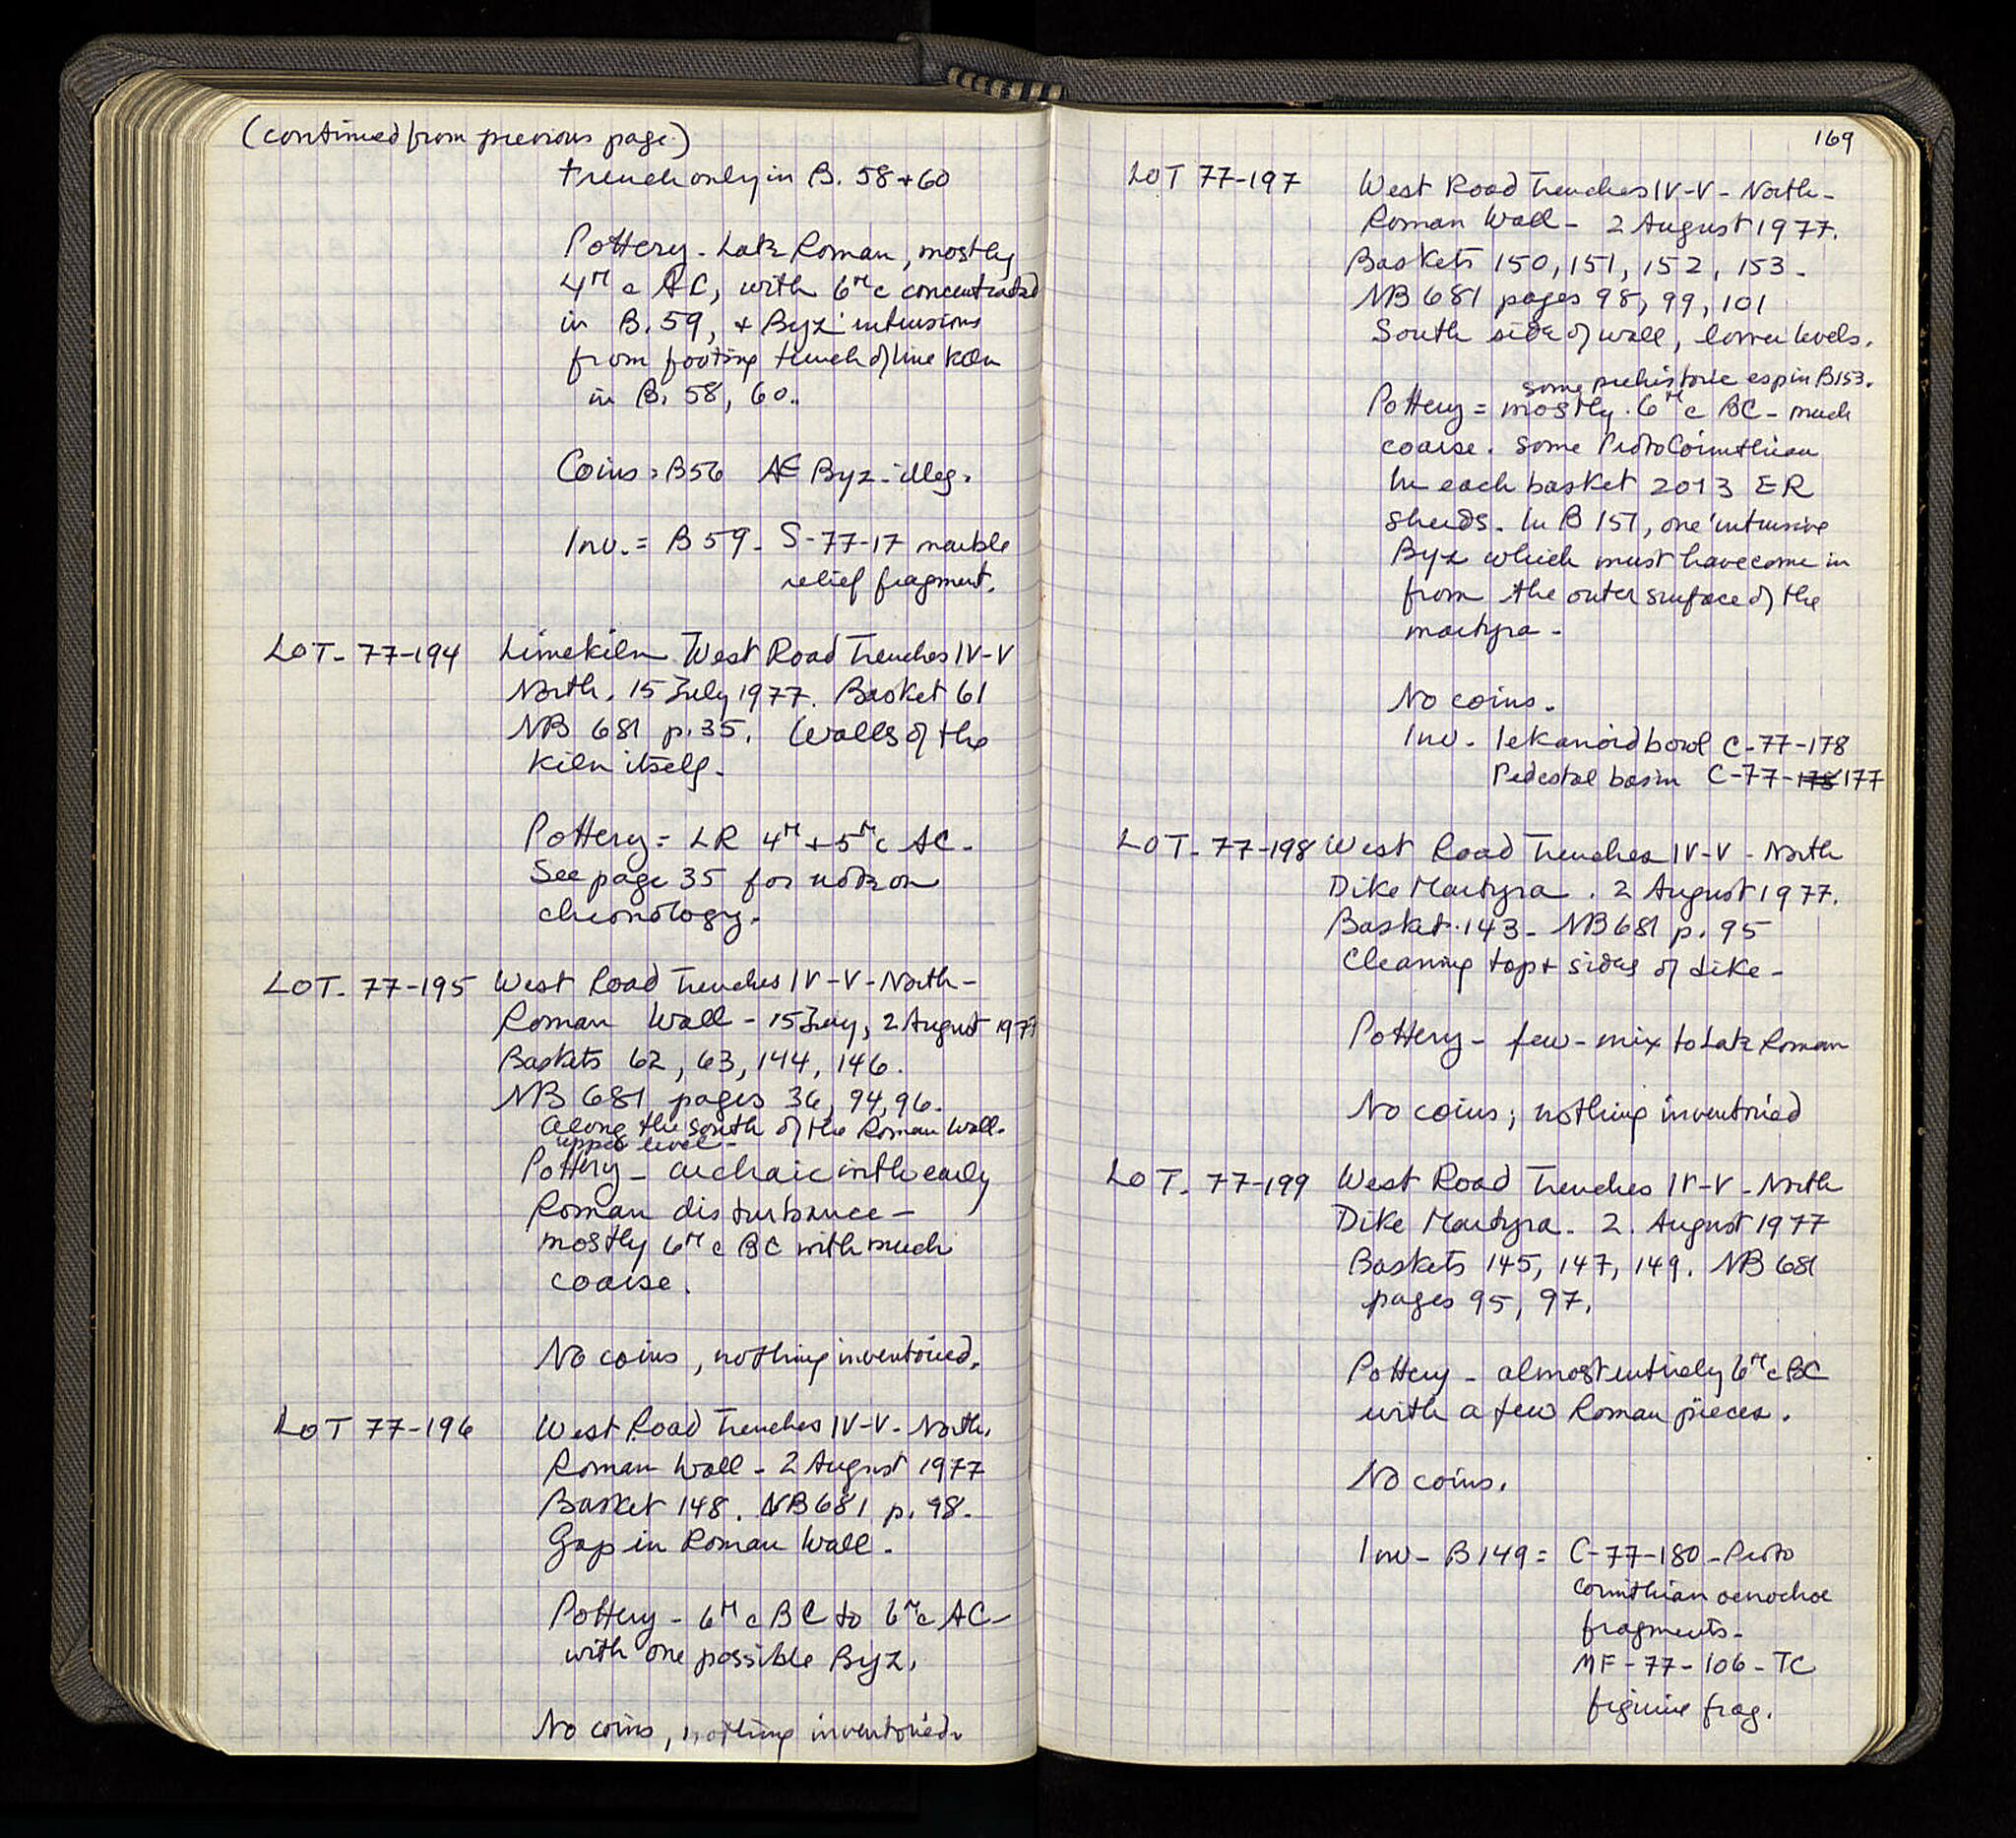 (continued from previous page.)
trench only in B. 58 + 60
Pottery - Late Roman, mostly
4th c AC, with 6th c concentrated
in B. 59, + Byz intrusions
from footing trench of lime kiln
in B. 58, 60..
Coins = B56 AE Byz - illeg.
Inv. = B 59 - S-77-17 marble
relief fragment.
LOT - 77-194 Limekiln West Road Trenches IV-V
North. 15 July 1977. Basket 61
NB 681 p. 35. (Walls of the
kiln itself.
Pottery = LR 4th + 5th c AC -
See page 35 for note on
chronology.
LOT - 77-195 West Road Trenches IV-V - North -
Roman Wall - 15 July, 2 August 1977
Baskets 62, 63, 144, 146.
NB 681 pages 36, 94, 96.
Along the south of the Roman Wall.
upper level -
Pottery - archaic with early
Roman disturbance -
mostly 6th c BC with much
coarse.
No coins, nothing inventoried.
LOT 77-196 West Road Trenches IV-V - North.
Roman Wall - 2 August 1977
Basket 148. NB 681 p. 98.
Gap in Roman Wall -
Pottery - 6th c BC to 6th c AC -
with one possible Byz.
No coins, nothing inventoried.
169
LOT 77-197 West Road Trenches IV-V - North -
Roman Wall - 2 August 1977.
Baskets 150, 151, 152, 153 -
NB 681 pages 98, 99, 101
South side of wall, lower levels.
some prehistoric esp in B153.
Pottery = mostly 6th c BC - much
coarse. Some ProtoCorinthian
In each basket 2 or 3 ER
sherds. In B 151, one intrusive
Byz which must have come in
from the outer surface of the
martyra -
No coins.
Inv. lekanoid bowl C-77-178
Pedestal basin C-77-178 177
LOT - 77-198 West Road Trenches IV-V - North
Dike Martyra. 2 August 1977.
Basket 143 - NB 681 p. 95
Cleaning top + sides of dike -
Pottery - few - mix to Late Roman
No coins; nothing inventoried
LOT - 77-199 West Road Trenches IV-V - North
Dike Martyra - 2. August 1977
Baskets 145, 147, 149. NB 681
pages 95, 97.
Pottery - almost entirely 6th c BC
with a few Roman pieces.
No coins.
Inv - B 149 = C-77-180 - Proto
corinthian oenochoe
fragments -
MF-77-106 - TC
figurine frag.